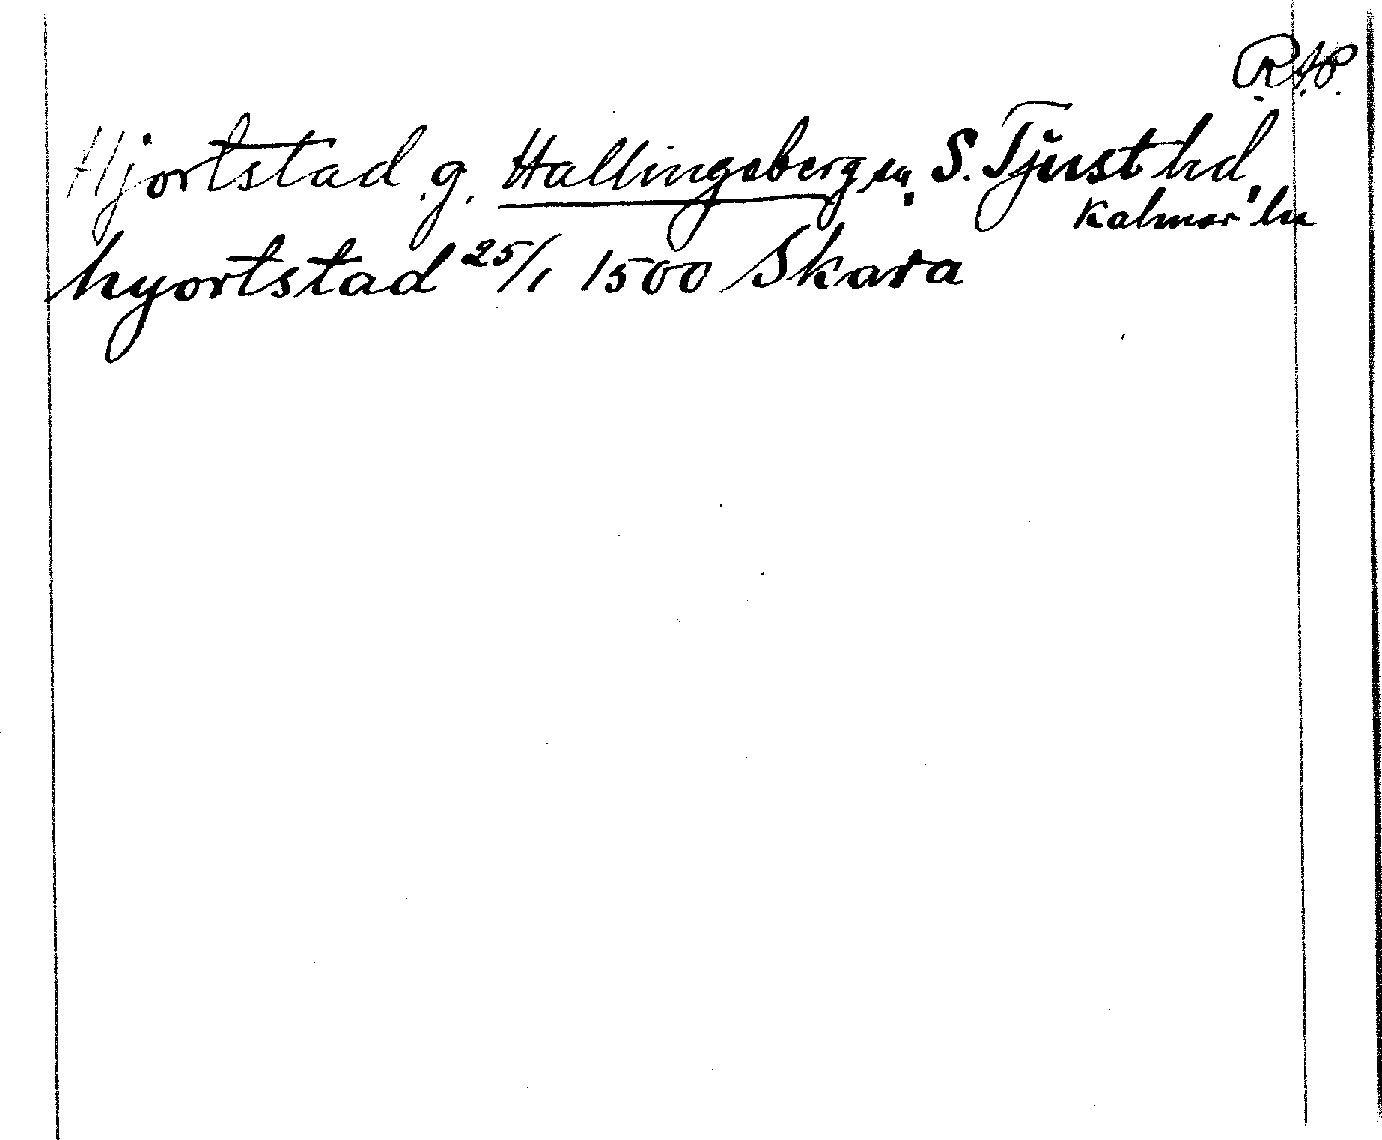 R.A.P.
Hjortstad g. Hallingeberg sn, S. Tjust hd,
Kalmar ln
hyortstad 25/1 1500 Skara